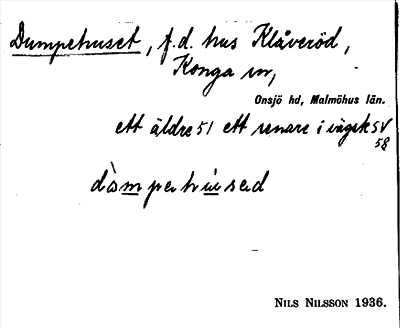 Dumpehuset, f.d. hus Klåveröd,
Konga sn,
Onsjö hd, Malmöhus län.
ett äldre 51 ett senare i vägsk SV
58
dòmpǝhúsǝd
NILS NILSSON 1936.